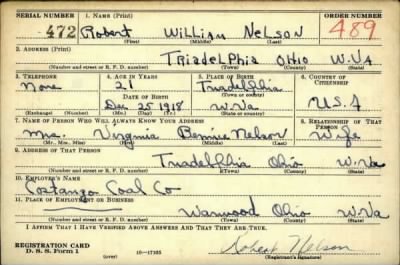 SERIAL NUMBER 1. NAME (Print) ORDER NUMBER
472 Robert William Nelson 489
(First) (Middle) (Last)
2. ADDRESS (Print)
Triadelphia Ohio W.Va
(Number and street or R. F. D. number) (Town) (County) (State)
3. TELEPHONE 4. AGE IN YEARS 5. PLACE OF BIRTH 6. COUNTRY OF CITIZENSHIP
None 21 Triadelphia
DATE OF BIRTH (Town or county)
Dec 25 1918 W.Va U.S.A
(Exchange) (Number) (Mo.) (Day) (Yr.) (State or country)
7. NAME OF PERSON WHO WILL ALWAYS KNOW YOUR ADDRESS 8. RELATIONSHIP OF THAT PERSON
Mrs. Virginia Bennie Nelson Wife
(Mr., Mrs., Miss) (First) (Middle) (Last)
9. ADDRESS OF THAT PERSON
Triadelphia Ohio W.Va
(Number and street or R. F. D. number) (Town) (County) (State)
10. EMPLOYER'S NAME
Costanzo Coal Co
11. PLACE OF EMPLOYMENT OR BUSINESS
Warwood Ohio W.Va
(Number and street or R. F. D. number) (Town) (County) (State)
I AFFIRM THAT I HAVE VERIFIED ABOVE ANSWERS AND THAT THEY ARE TRUE.
Robert Nelson
REGISTRATION CARD
D. S. S. Form 1 (over) 16—17105 (Registrant's signature)